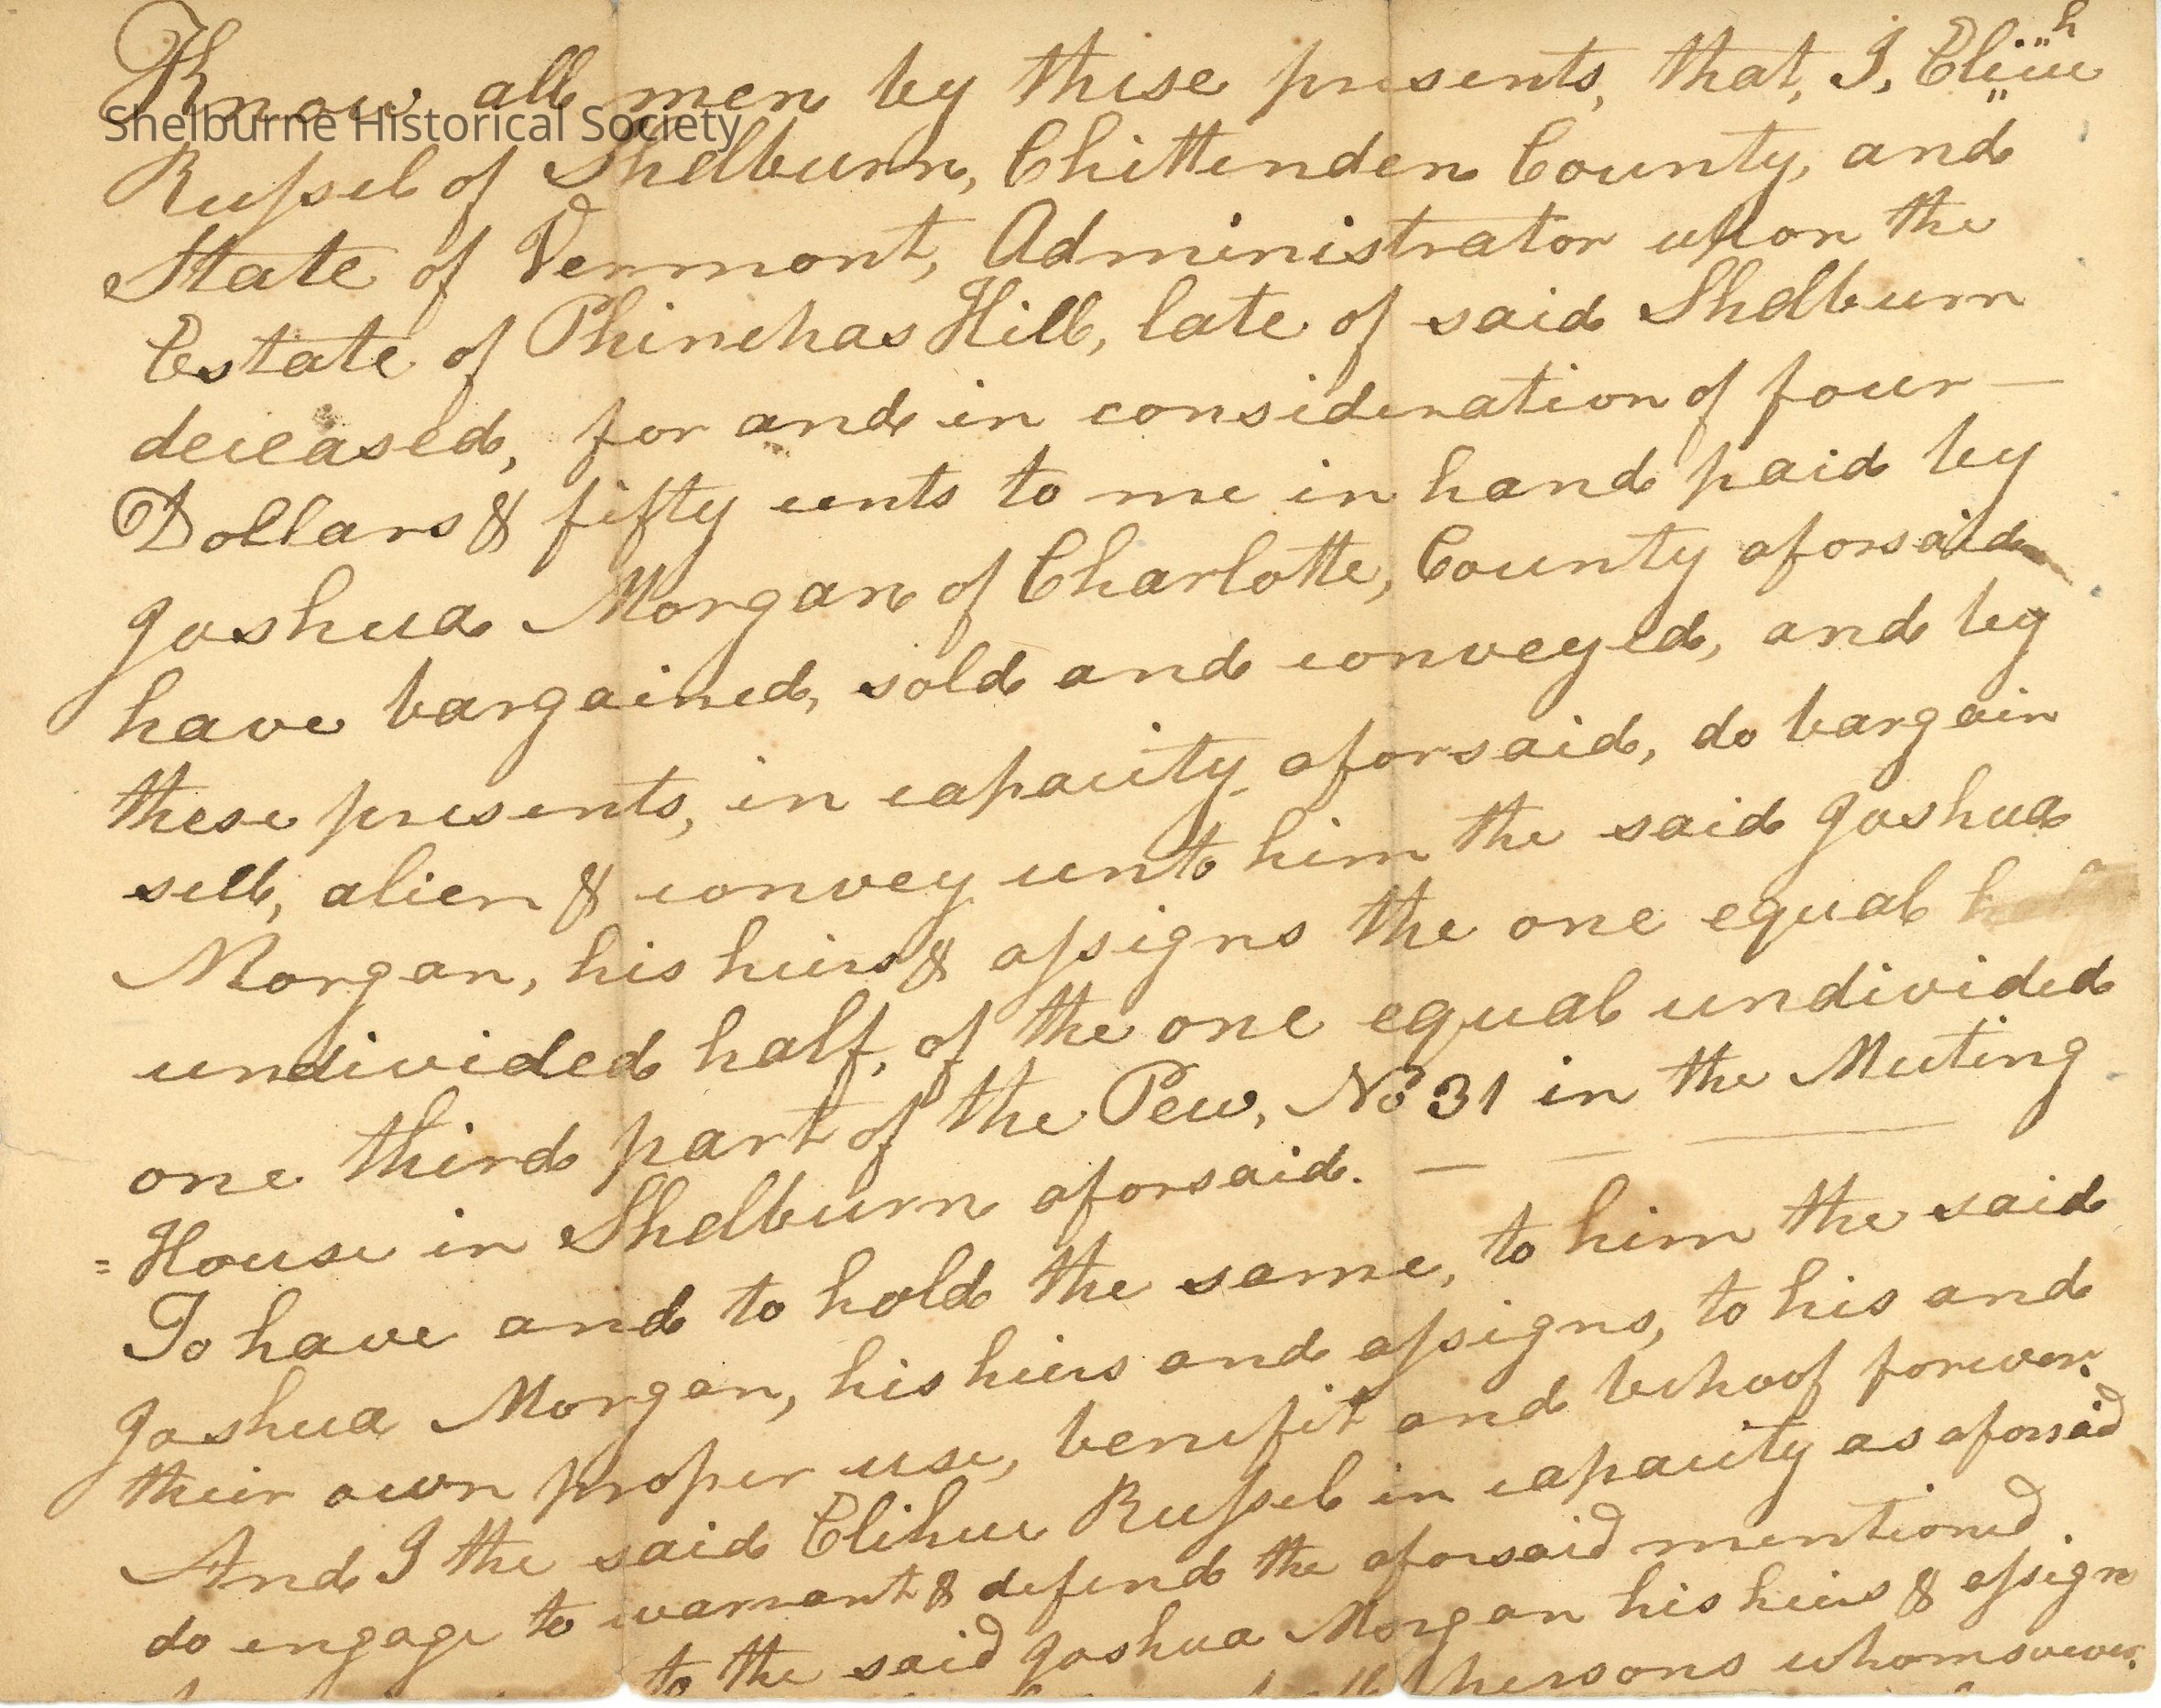 Know all men by thise presents, that, I, Eliuu h
Shelburne Historical Society
Rufsel of Shelburn, Chittenden County, and
State of Vermont, Administrator upon the
Estate of Phinehas Hill, late of said Shelburn
deceased, for and in consideration of four —
Dollars & fifty cents to me in hand paid by
Joshua Morgan of Charlotte, County aforsaid
have bargained, sold and conveyed, and by
these presents, in capacity aforsaid, do bargain
sell, alien & convey unto him the said Joshua
Morgan, his heirs & afsigns the one equal
undivided half, of the one equal undivided
one third part of the Pew, No 31 in the Meeting
=House in Shelburn aforsaid. — —
To have and to hold the same, to him the said
Joshua Morgan, his heirs and afsigns, to his and
their own proper use, benefit and behoof forever.
And I the said Elihuu Rufsel in capacity as aforsaid
do engage to warrant & defend the aforsaid mentioned
to the said Joshua Morgan his heirs & afsign
persons whomsoever.